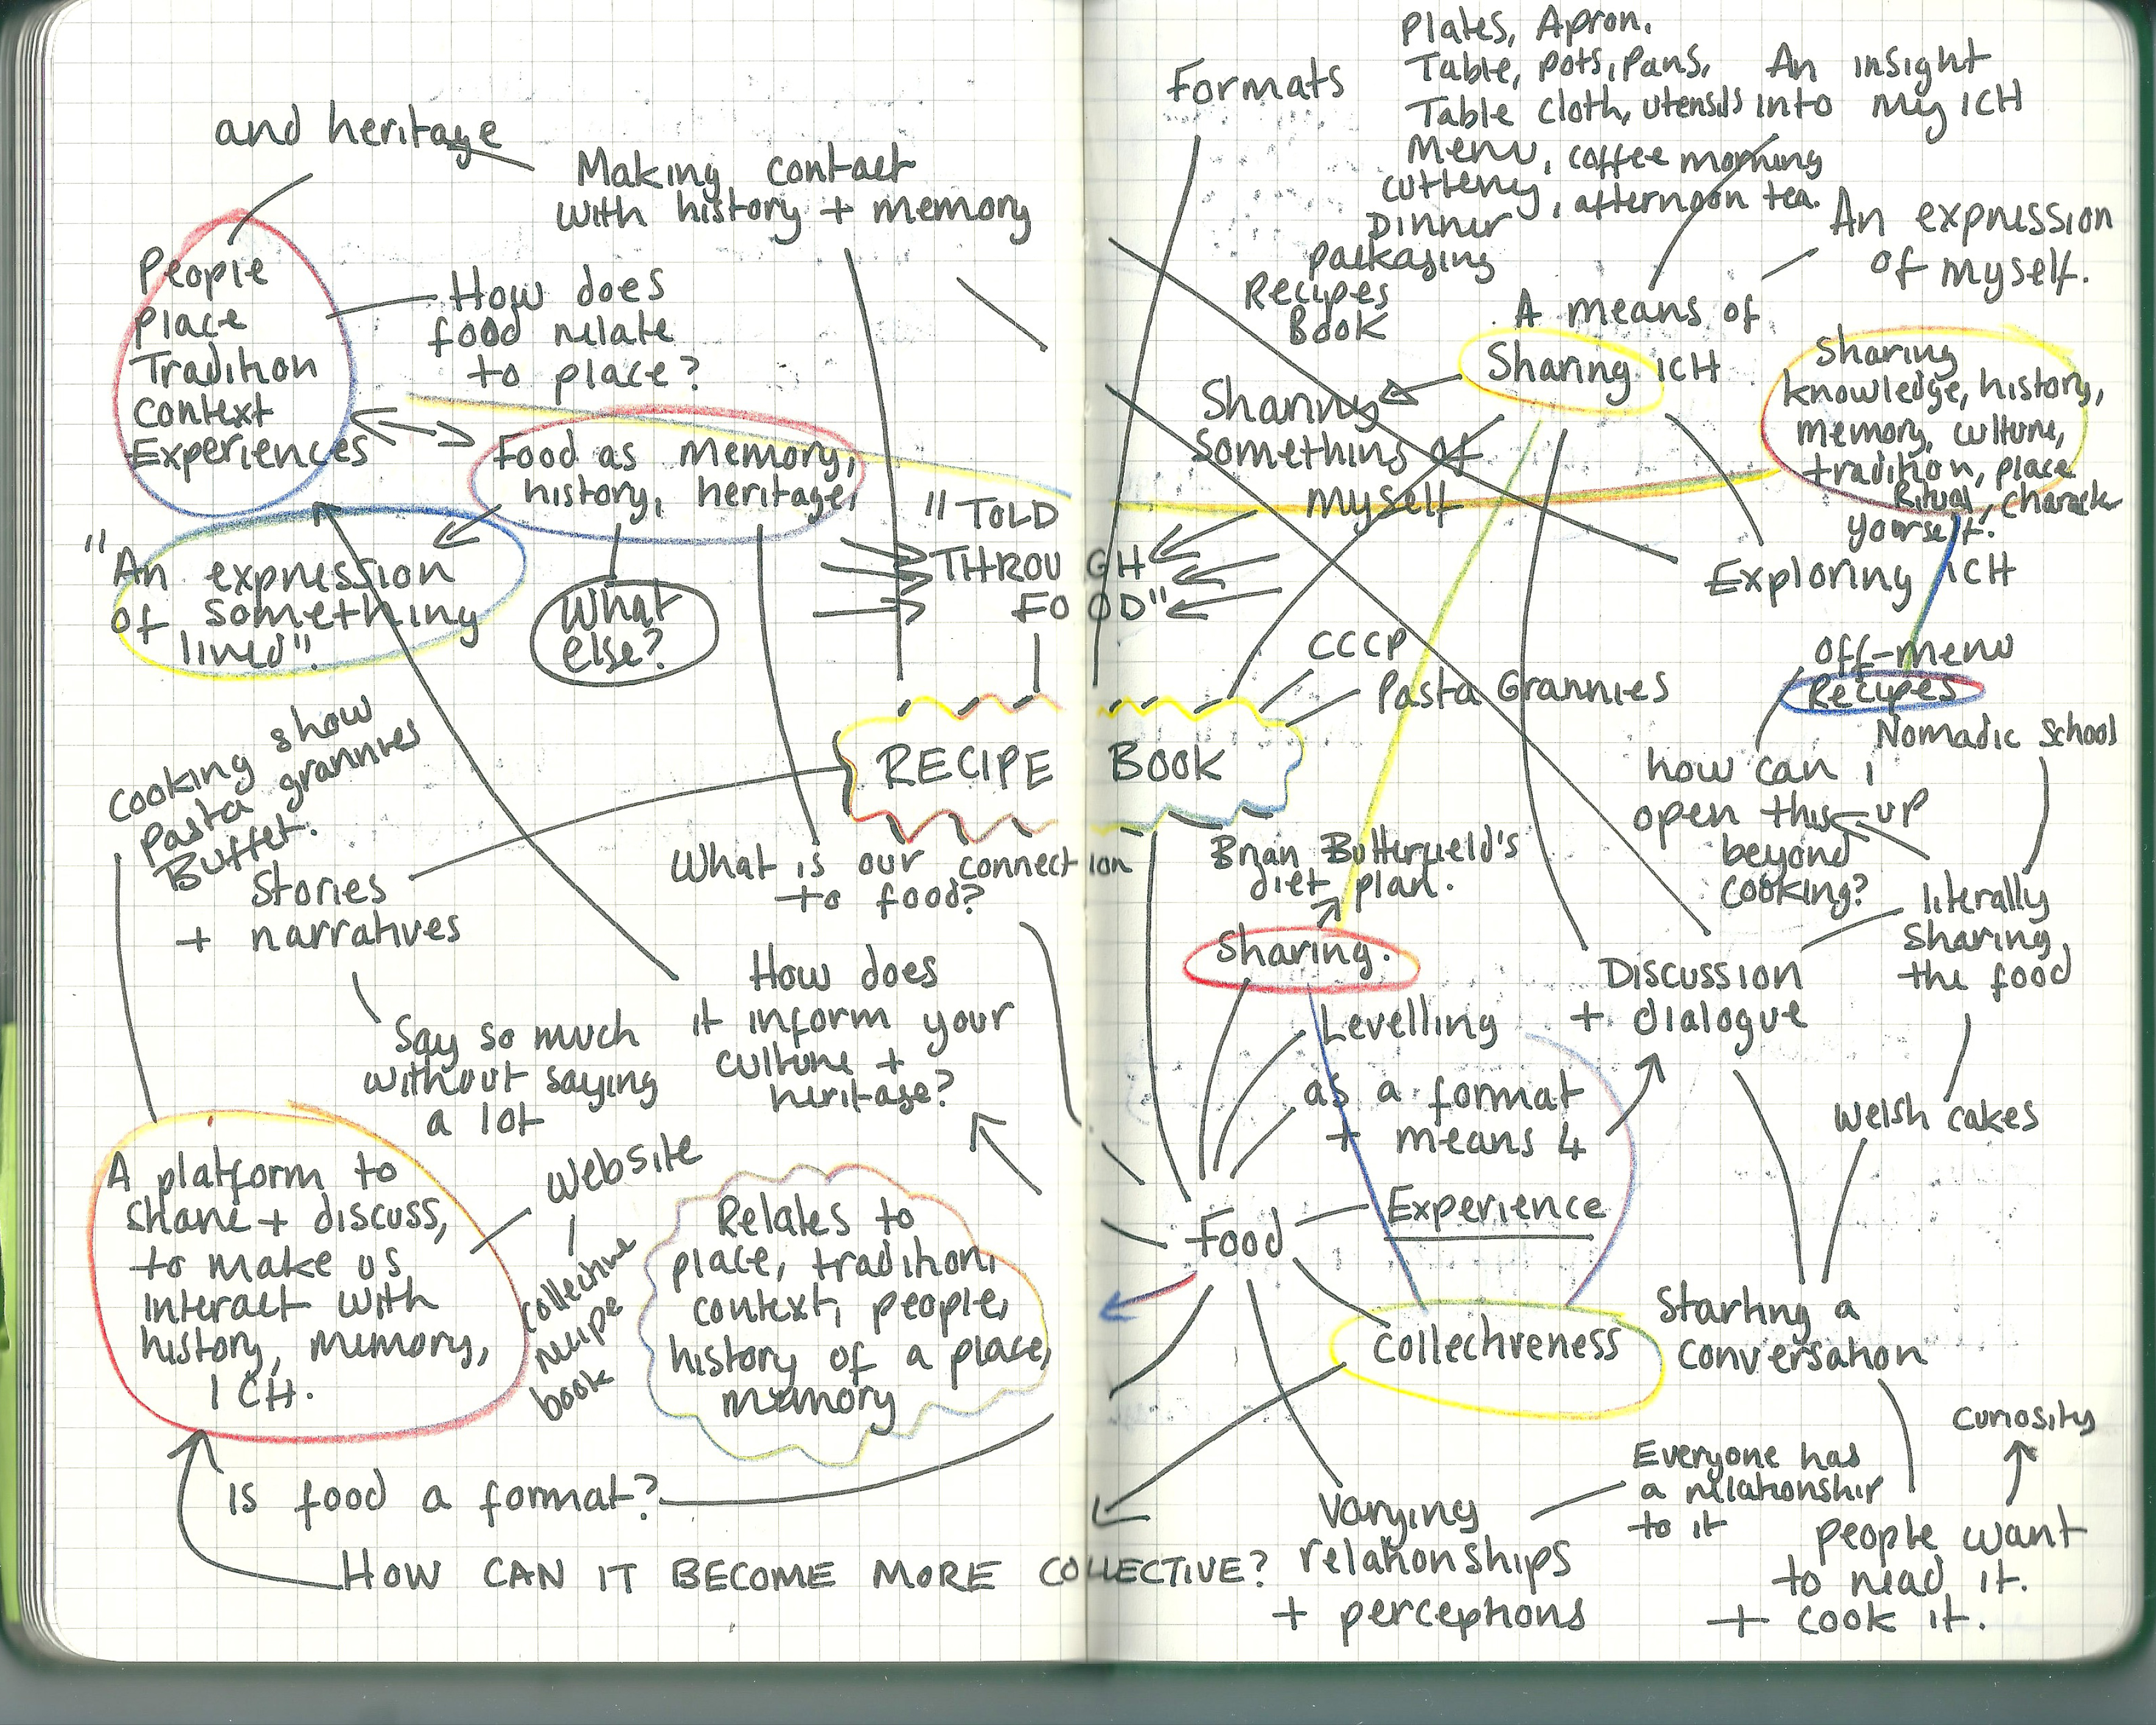 and heritage
Making contact
with history + memory
People
Place
Tradition
Context
Experiences
How does
food relate
to place?
Food as memory,
history, heritage,
"An expression
of something
lived".
What
else?
"TOLD
THROUGH
FOOD"
RECIPE BOOK
Cooking show
Pasta grannies
Buffet.
Stories
+ narratives
Say so much
without saying
a lot
What is our connection
to food?
How does
it inform your
culture +
heritage?
A platform to
share + discuss,
to make us
interact with
history, memory,
ICH.
Website
collective
recipe
book
Relates to
place, tradition,
context, people,
history of a place,
memory
Is food a format?
HOW CAN IT BECOME MORE COLLECTIVE?
Formats
Plates, Apron.
Table, pots, pans,
Table cloth, utensils
Menu, coffee morning
cutlery, afternoon tea.
Dinner
packaging
Recipes
Book
An insight
into my ICH
An expression
of myself.
A means of
Sharing ICH
Sharing
something of
myself
Sharing
knowledge, history,
memory, culture,
tradition, place
Ritual, character
yourself.
Exploring ICH
CCCP
Pasta Grannies
off-menu
Recipes
Nomadic School
how can i
open this up
beyond
cooking?
Brian Butterfield's
diet plan.
Sharing.
literally
sharing
the food
Discussion
+ dialogue
Levelling
as a format
+ means 4
Welsh cakes
Experience
Food
Collectiveness
Starting a
conversation
curiosity
Everyone has
a relationship
to it
Varying
relationships
+ perceptions
people want
to read it.
+ cook it.